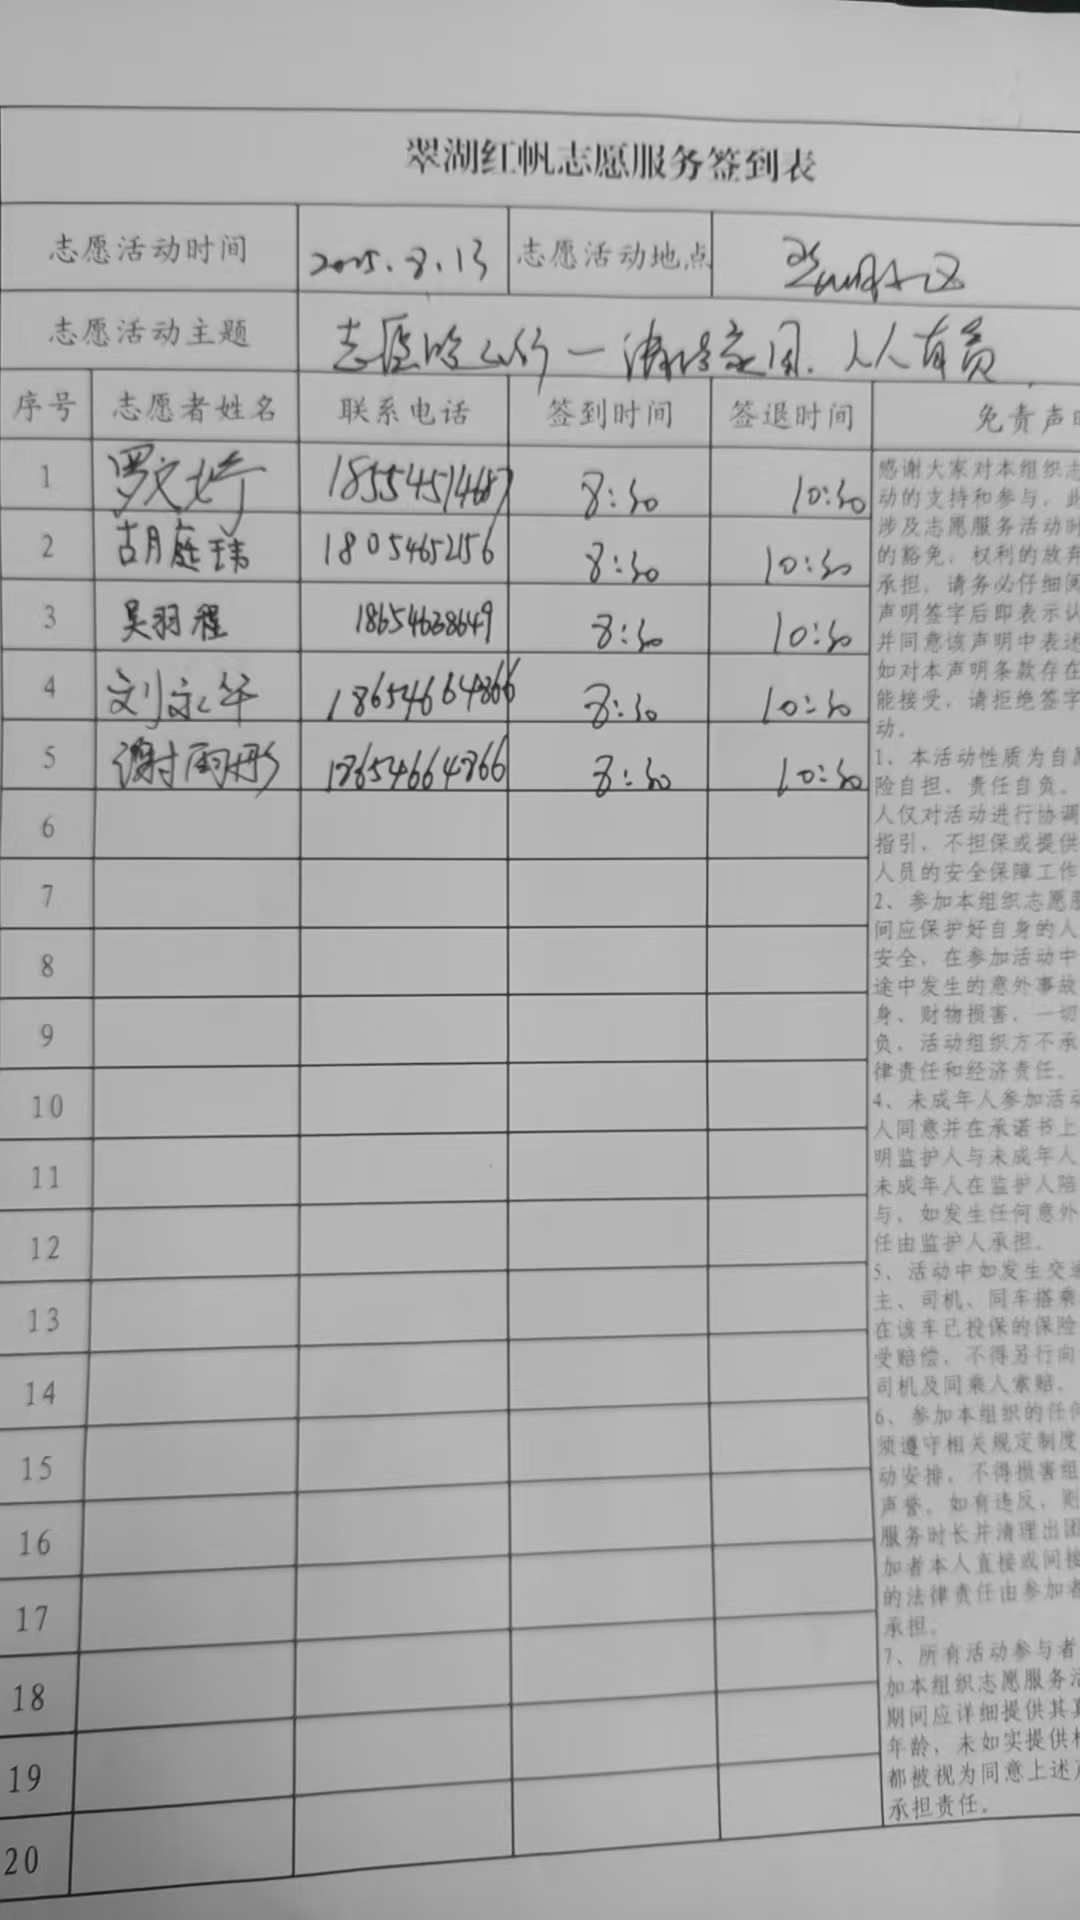 翠湖红帆志愿服务签到表
志愿活动时间 2025.8.13 志愿活动地点
志愿活动主题 志愿 一 家园、人人有责
序号 志愿者姓名 联系电话 签到时间 签退时间 免责声明
1 罗文婷 18554514687 8:30 10:30
2 胡庭玮 18054652156 8:30 10:30
3 吴羽程 18654638649 8:30 10:30
4 刘永华 18654664866 8:30 10:30
5 谢雨彤 18654664866 8:30 10:30
6
7
8
9
10
11
12
13
14
15
16
17
18
19
20
感谢大家对本组织志
动的支持和参与，此
涉及志愿服务活动时
的豁免，权利的放弃
承担，请务必仔细阅
声明签字后即表示认
并同意该声明中表述
如对本声明条款存在
能接受，请拒绝签字
动。
1、本活动性质为自愿
险自担，责任自负。
人仅对活动进行协调
指引，不担保或提供
人员的安全保障工作
2、参加本组织志愿服
间应保护好自身的人
安全，在参加活动中
途中发生的意外事故
身、财物损害，一切
负，活动组织方不承
律责任和经济责任。
4、未成年人参加活动
人同意并在承诺书上
明监护人与未成年人
未成年人在监护人陪
与，如发生任何意外
任由监护人承担。
5、活动中如发生交通
主、司机、同车搭乘
在该车已投保的保险
受赔偿，不得另行向
司机及同乘人索赔。
6、参加本组织的任何
须遵守相关规定制度
动安排，不得损害组
声誉。如有违反，则
服务时长并清理出团
加者本人直接或间接
的法律责任由参加者
承担。
7、所有活动参与者
加本组织志愿服务活
期间应详细提供其真
年龄，未如实提供相
都被视为同意上述声
承担责任。